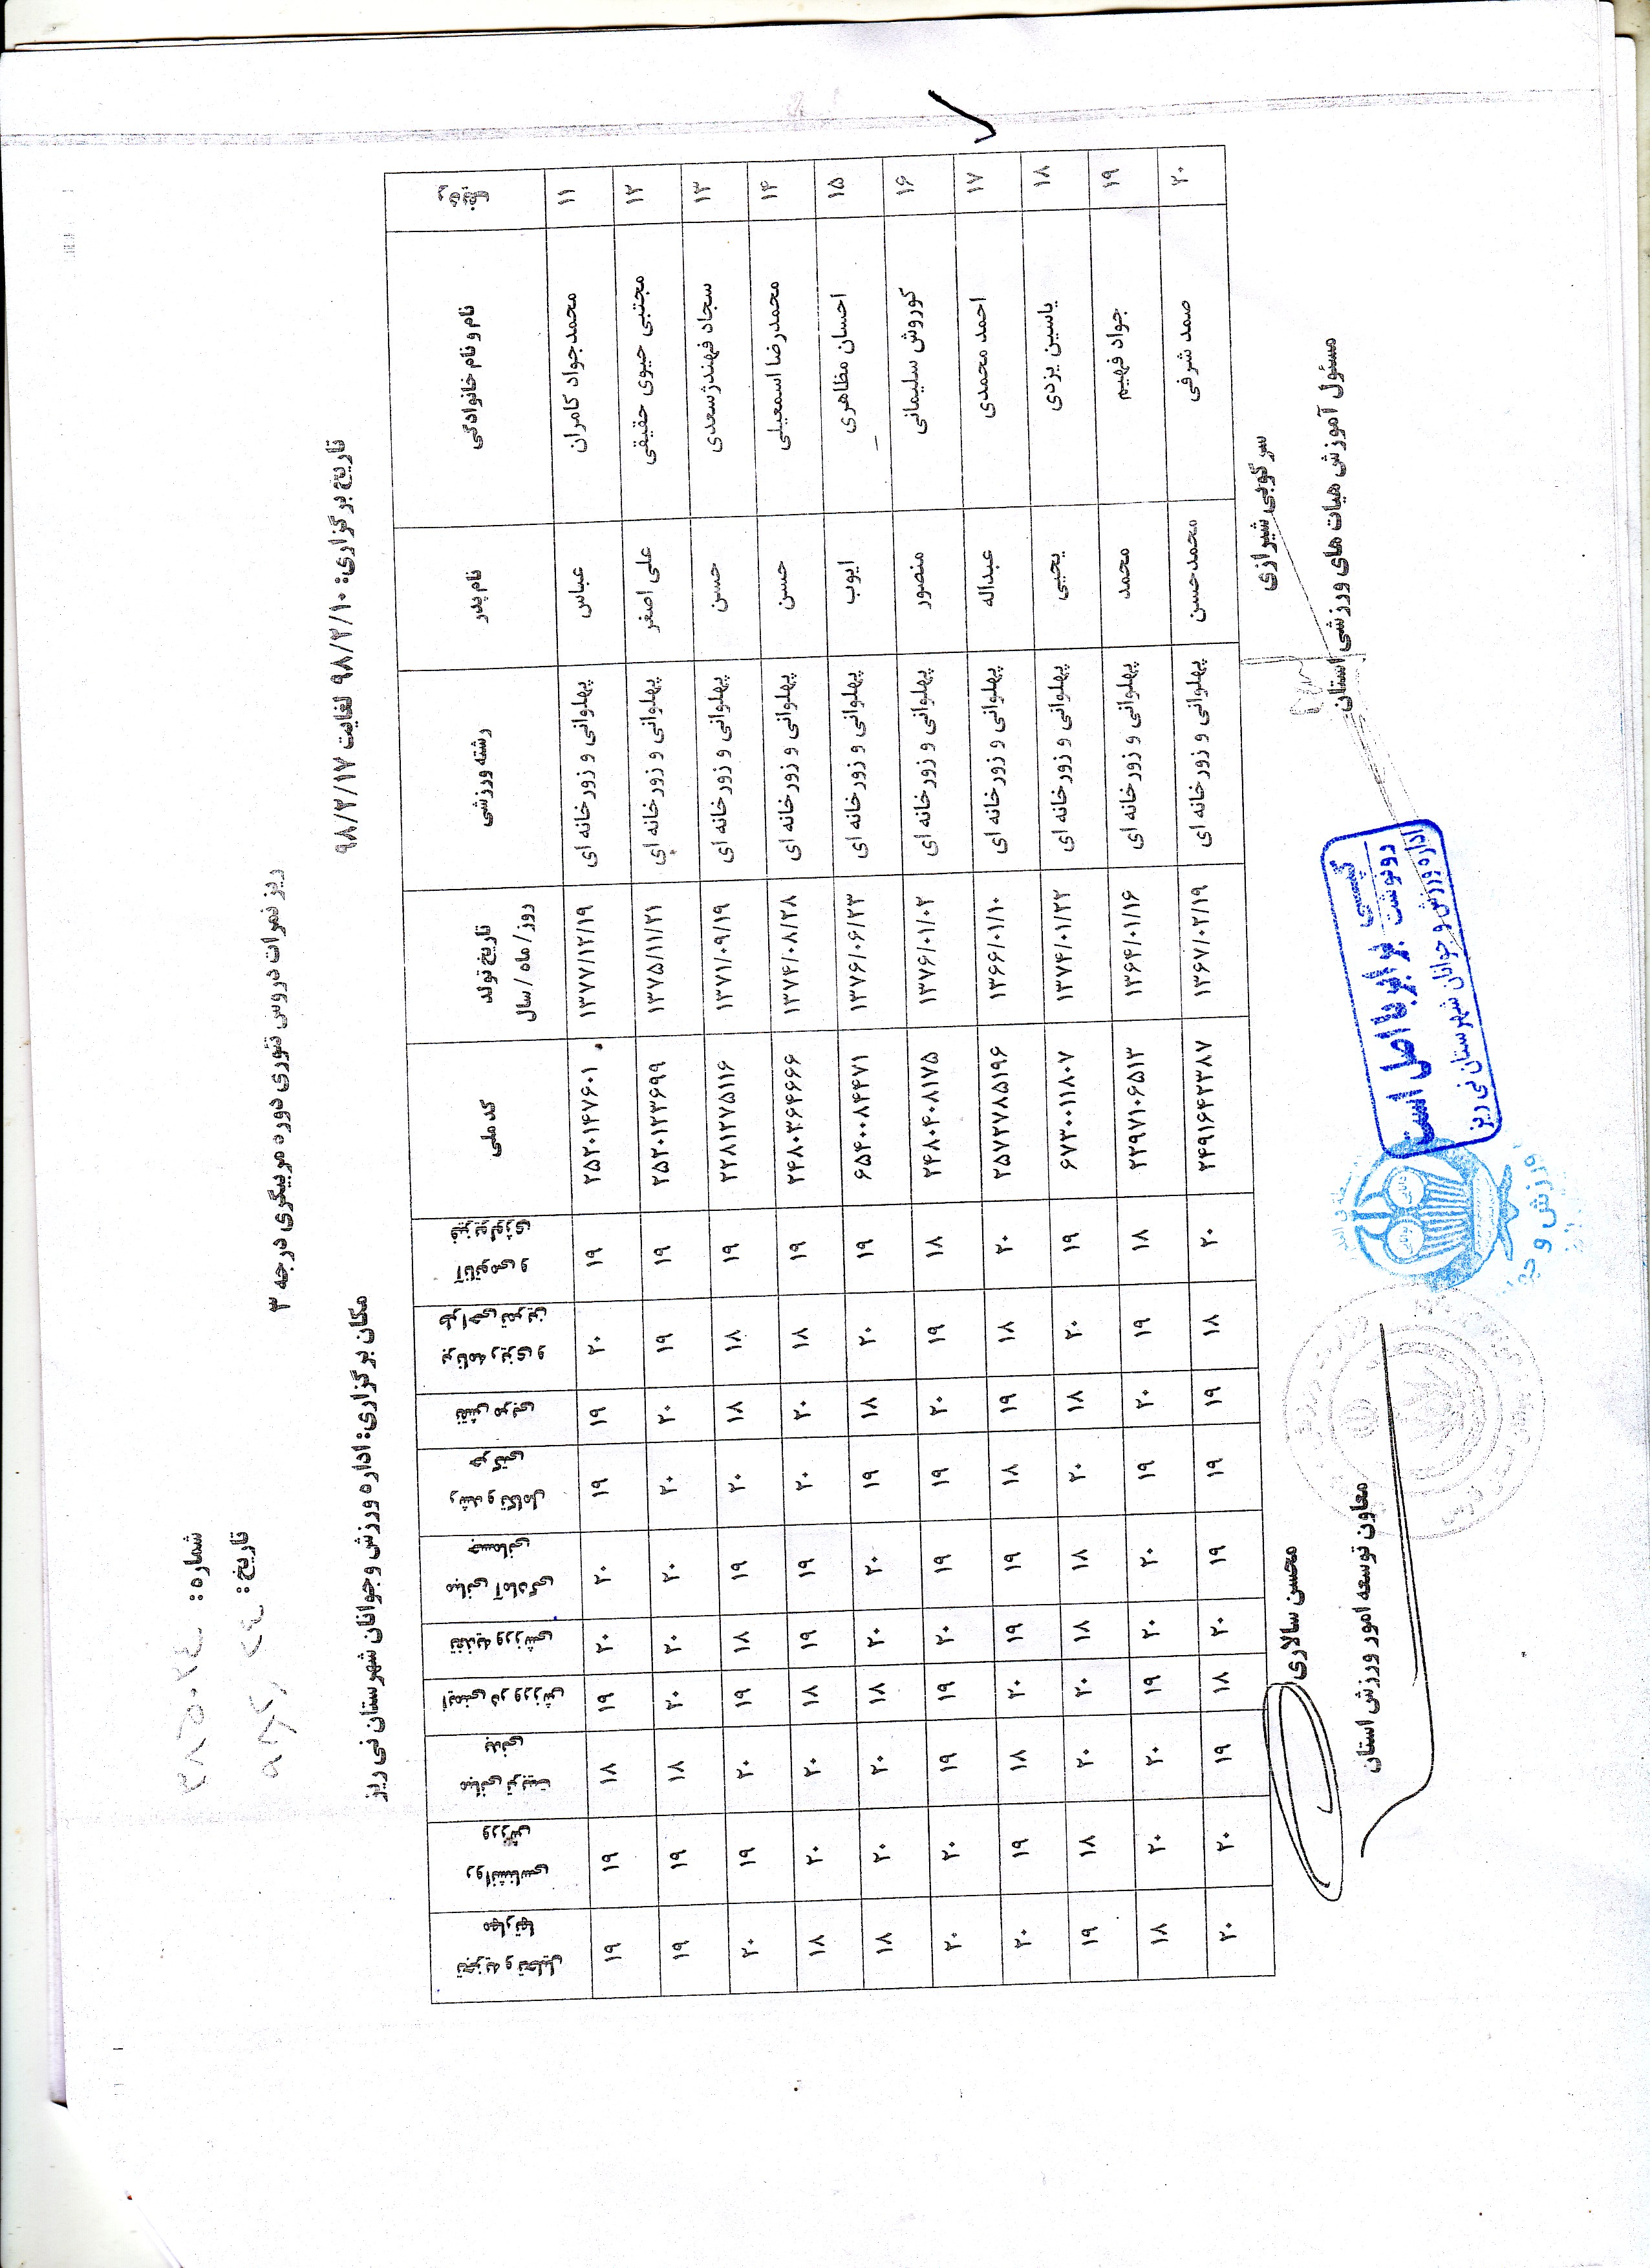 شماره:
تاریخ:
ریز نمرات دروس تئوری دوره مربیگری درجه ۳
تاریخ برگزاری: ۹۸/۲/۱۰ لغایت ۹۸/۲/۱۷
مکان برگزاری: اداره ورزش و جوانان شهرستان نی ریز
ردیف نام و نام خانوادگی نام پدر رشته ورزشی تاریخ تولد روز/ ماه / سال کد ملی آناتومی و فیزیولوژی برنامه ریزی و طراحی تمرین نقش مربی رشد و تکامل حرکتی مبانی آمادگی جسمانی تغذیه ورزشی ایمنی در ورزش مبانی تربیت بدنی روانشناسی ورزش تجزیه و تحلیل مهارتها
۱۱ محمدجواد کامران عباس پهلوانی و زورخانه ای ۱۳۷۷/۱۲/۱۹ ۲۵۲۰۱۴۷۶۰۱ ۱۹ ۲۰ ۱۹ ۱۹ ۲۰ ۲۰ ۱۹ ۱۸ ۱۹ ۱۹
۱۲ مجتبی حیوی حقیقی علی اصغر پهلوانی و زورخانه ای ۱۳۷۵/۱۱/۲۱ ۲۵۲۰۱۲۳۶۹۹ ۱۹ ۱۹ ۲۰ ۲۰ ۲۰ ۲۰ ۲۰ ۱۸ ۱۹ ۱۹
۱۳ سجاد قهندژسعدی حسن پهلوانی و زورخانه ای ۱۳۷۱/۰۹/۱۹ ۲۲۸۱۲۷۵۱۱۶ ۱۹ ۱۸ ۱۸ ۲۰ ۱۹ ۱۸ ۱۹ ۲۰ ۱۹ ۲۰
۱۴ محمدرضا اسمعیلی حسن پهلوانی و زورخانه ای ۱۳۷۴/۰۸/۲۸ ۲۴۸۰۳۶۴۶۶۶ ۱۹ ۱۸ ۲۰ ۲۰ ۱۹ ۱۹ ۱۸ ۲۰ ۲۰ ۱۸
۱۵ احسان مظاهری ایوب پهلوانی و زورخانه ای ۱۳۷۶/۰۶/۲۳ ۶۵۴۰۰۸۴۴۷۱ ۱۹ ۲۰ ۱۸ ۱۹ ۲۰ ۲۰ ۱۸ ۲۰ ۲۰ ۱۸
۱۶ کوروش سلیمانی منصور پهلوانی و زورخانه ای ۱۳۷۶/۰۱/۰۲ ۲۴۸۰۴۰۸۱۷۵ ۱۸ ۱۹ ۲۰ ۱۹ ۱۹ ۲۰ ۱۹ ۱۹ ۲۰ ۲۰
۱۷ احمد محمدی عبداله پهلوانی و زورخانه ای ۱۳۶۶/۰۱/۱۰ ۲۵۷۲۷۸۵۱۹۶ ۲۰ ۱۸ ۱۹ ۱۸ ۱۹ ۱۹ ۲۰ ۱۸ ۱۹ ۲۰
۱۸ یاسین یزدی یحیی پهلوانی و زورخانه ای ۱۳۷۴/۰۱/۲۲ ۶۷۳۰۰۱۱۸۰۷ ۱۹ ۲۰ ۱۸ ۲۰ ۱۸ ۱۸ ۲۰ ۲۰ ۱۸ ۱۹
۱۹ جواد فهیم محمد پهلوانی و زورخانه ای ۱۳۶۴/۰۱/۱۶ ۲۲۹۷۱۰۶۵۱۳ ۱۸ ۱۹ ۲۰ ۱۹ ۲۰ ۲۰ ۱۹ ۲۰ ۲۰ ۱۸
۲۰ صمد شرفی محمدحسن پهلوانی و زورخانه ای ۱۳۶۷/۰۲/۱۹ ۲۴۹۱۶۴۲۳۸۷ ۲۰ ۱۸ ۱۹ ۱۹ ۱۹ ۲۰ ۱۸ ۱۹ ۲۰ ۲۰
سرکوبی شیرازی
مسئول آموزش هیات های ورزشی استان
محسن سالاری
معاون توسعه امور ورزش استان
کپی
رونوشت برابر با اصل است
اداره ورزش و جوانان شهرستان نی ریز